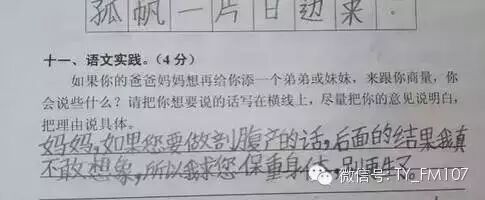 孤帆一片日边来.
十一、语文实践。（4分）
如果你的爸爸妈妈想再给你添一个弟弟或妹妹，来跟你商量，你
会说些什么？请把你想要说的话写在横线上，尽量把你的意见说明白，
把理由说具体。
妈妈，如果您要做剖腹产的话，后面的结果我真
不敢想象，所以我求您保重身体，别再生了。
微信号：TY_FM107